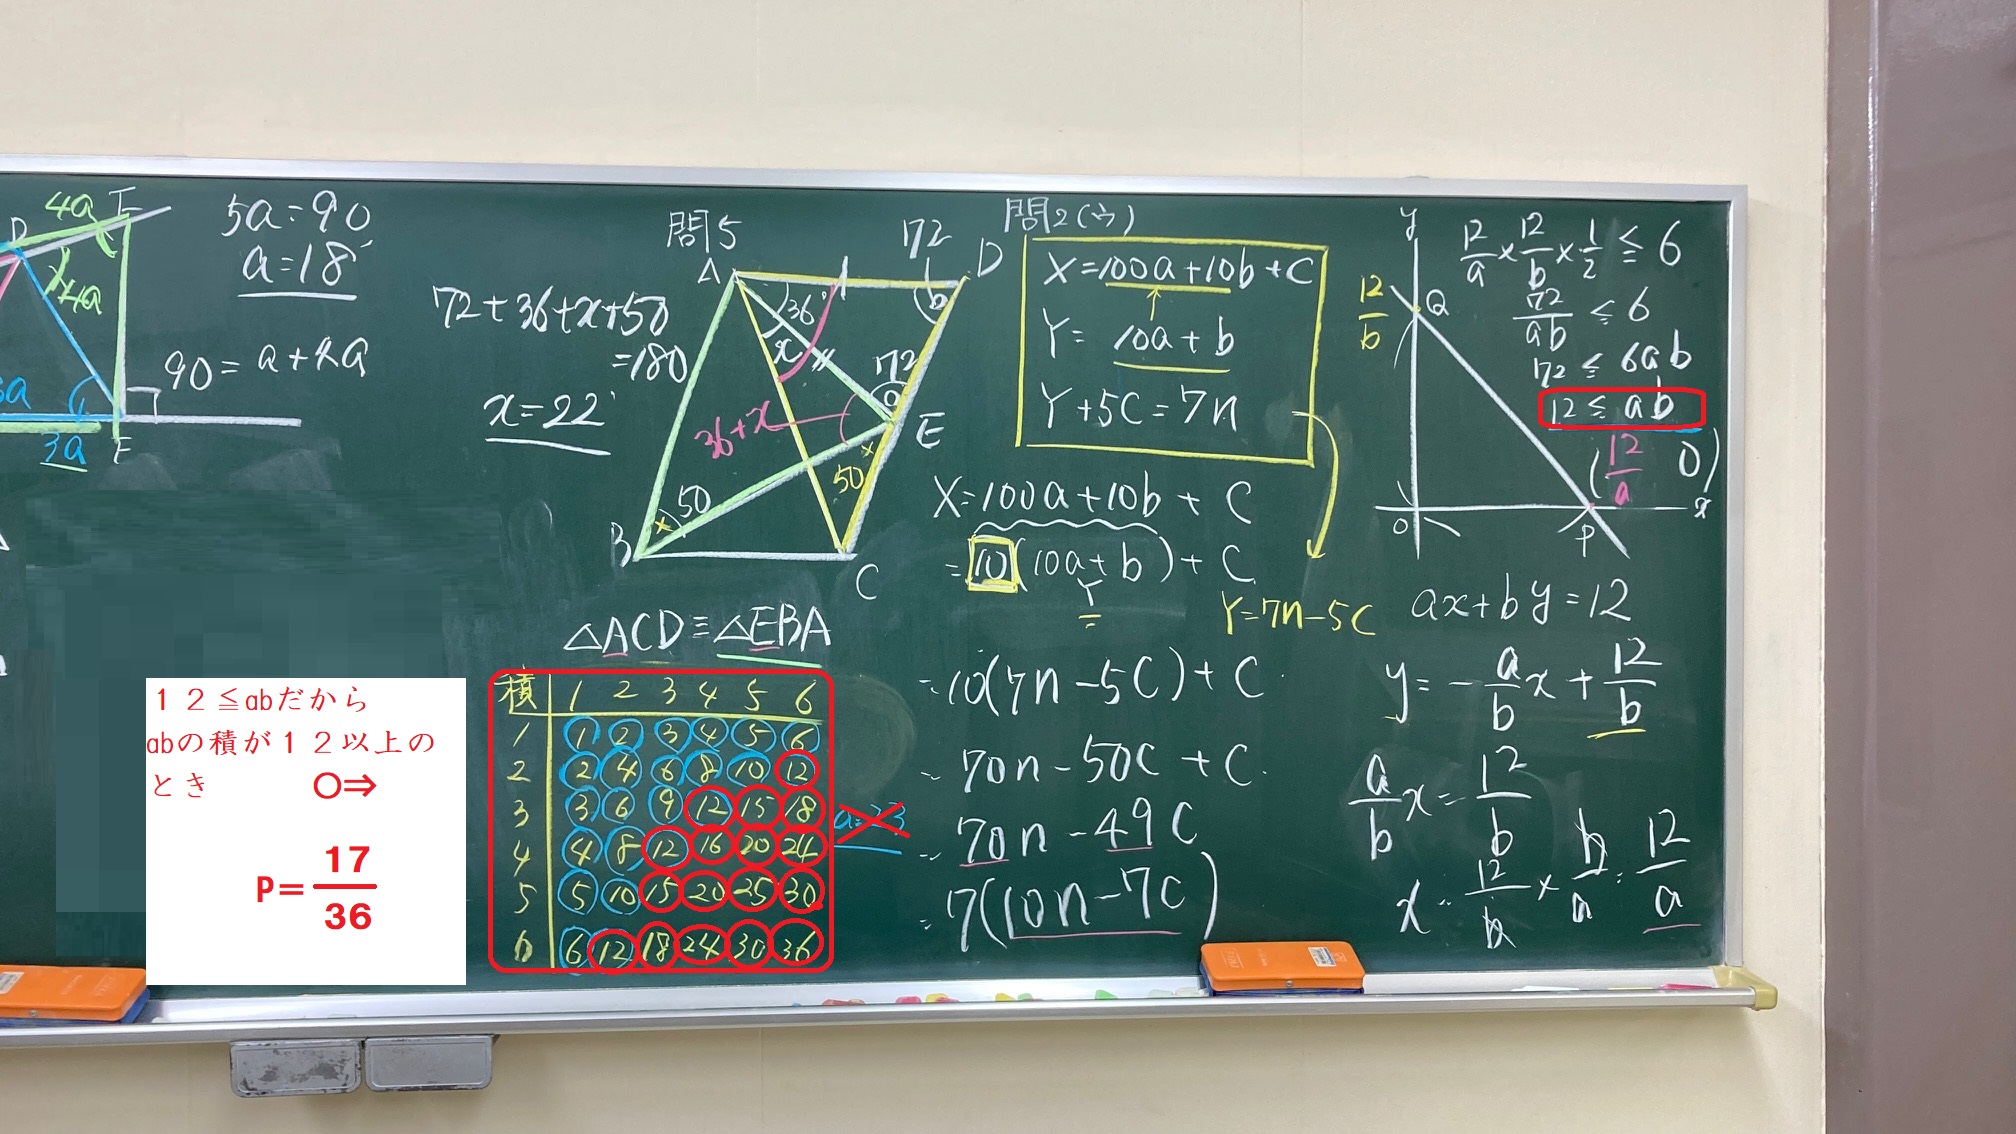 4a
5a=90
a=18°
4a
90=a+4a
3a
F
問5
A
72
D
72+36+x+50
=180
x=22°
36°
x
72
36+x
E
50
50
B
C
△ACD≡△EBA
積 1 2 3 4 5 6
1 1 2 3 4 5 6
2 2 4 6 8 10 12
3 3 6 9 12 15 18
4 4 8 12 16 20 24
5 5 10 15 20 25 30
6 6 12 18 24 30 36
12≦abだから
abの積が12以上の
とき ○⇒
P=17/36
問2(ウ)
X=100a+10b+C
Y=10a+b
Y+5C=7n
X=100a+10b+C
=10(10a+b)+C
Y
Y=7n-5C
=10(7n-5C)+C
=70n-50C+C
=70n-49C
=7(10n-7C)
y
12/b
Q
12/a×12/b×1/2≦6
72/ab≦6
72≦6ab
12≦ab
(12/a 0)
x
O
P
ax+by=12
y=-a/b x+12/b
a/b x=12/b
x=12/b×b/a=12/a